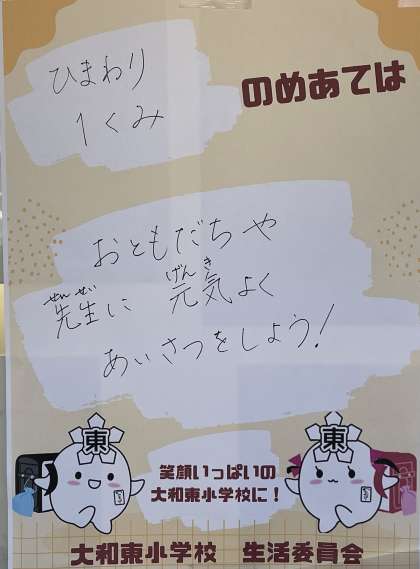 ひまわり
1くみ
のめあては
おともだちや
せんせい
先生に
げんき
元気よく
あいさつをしよう!
東
東
笑顔いっぱいの
大和東小学校に!
大和東小学校 生活委員会